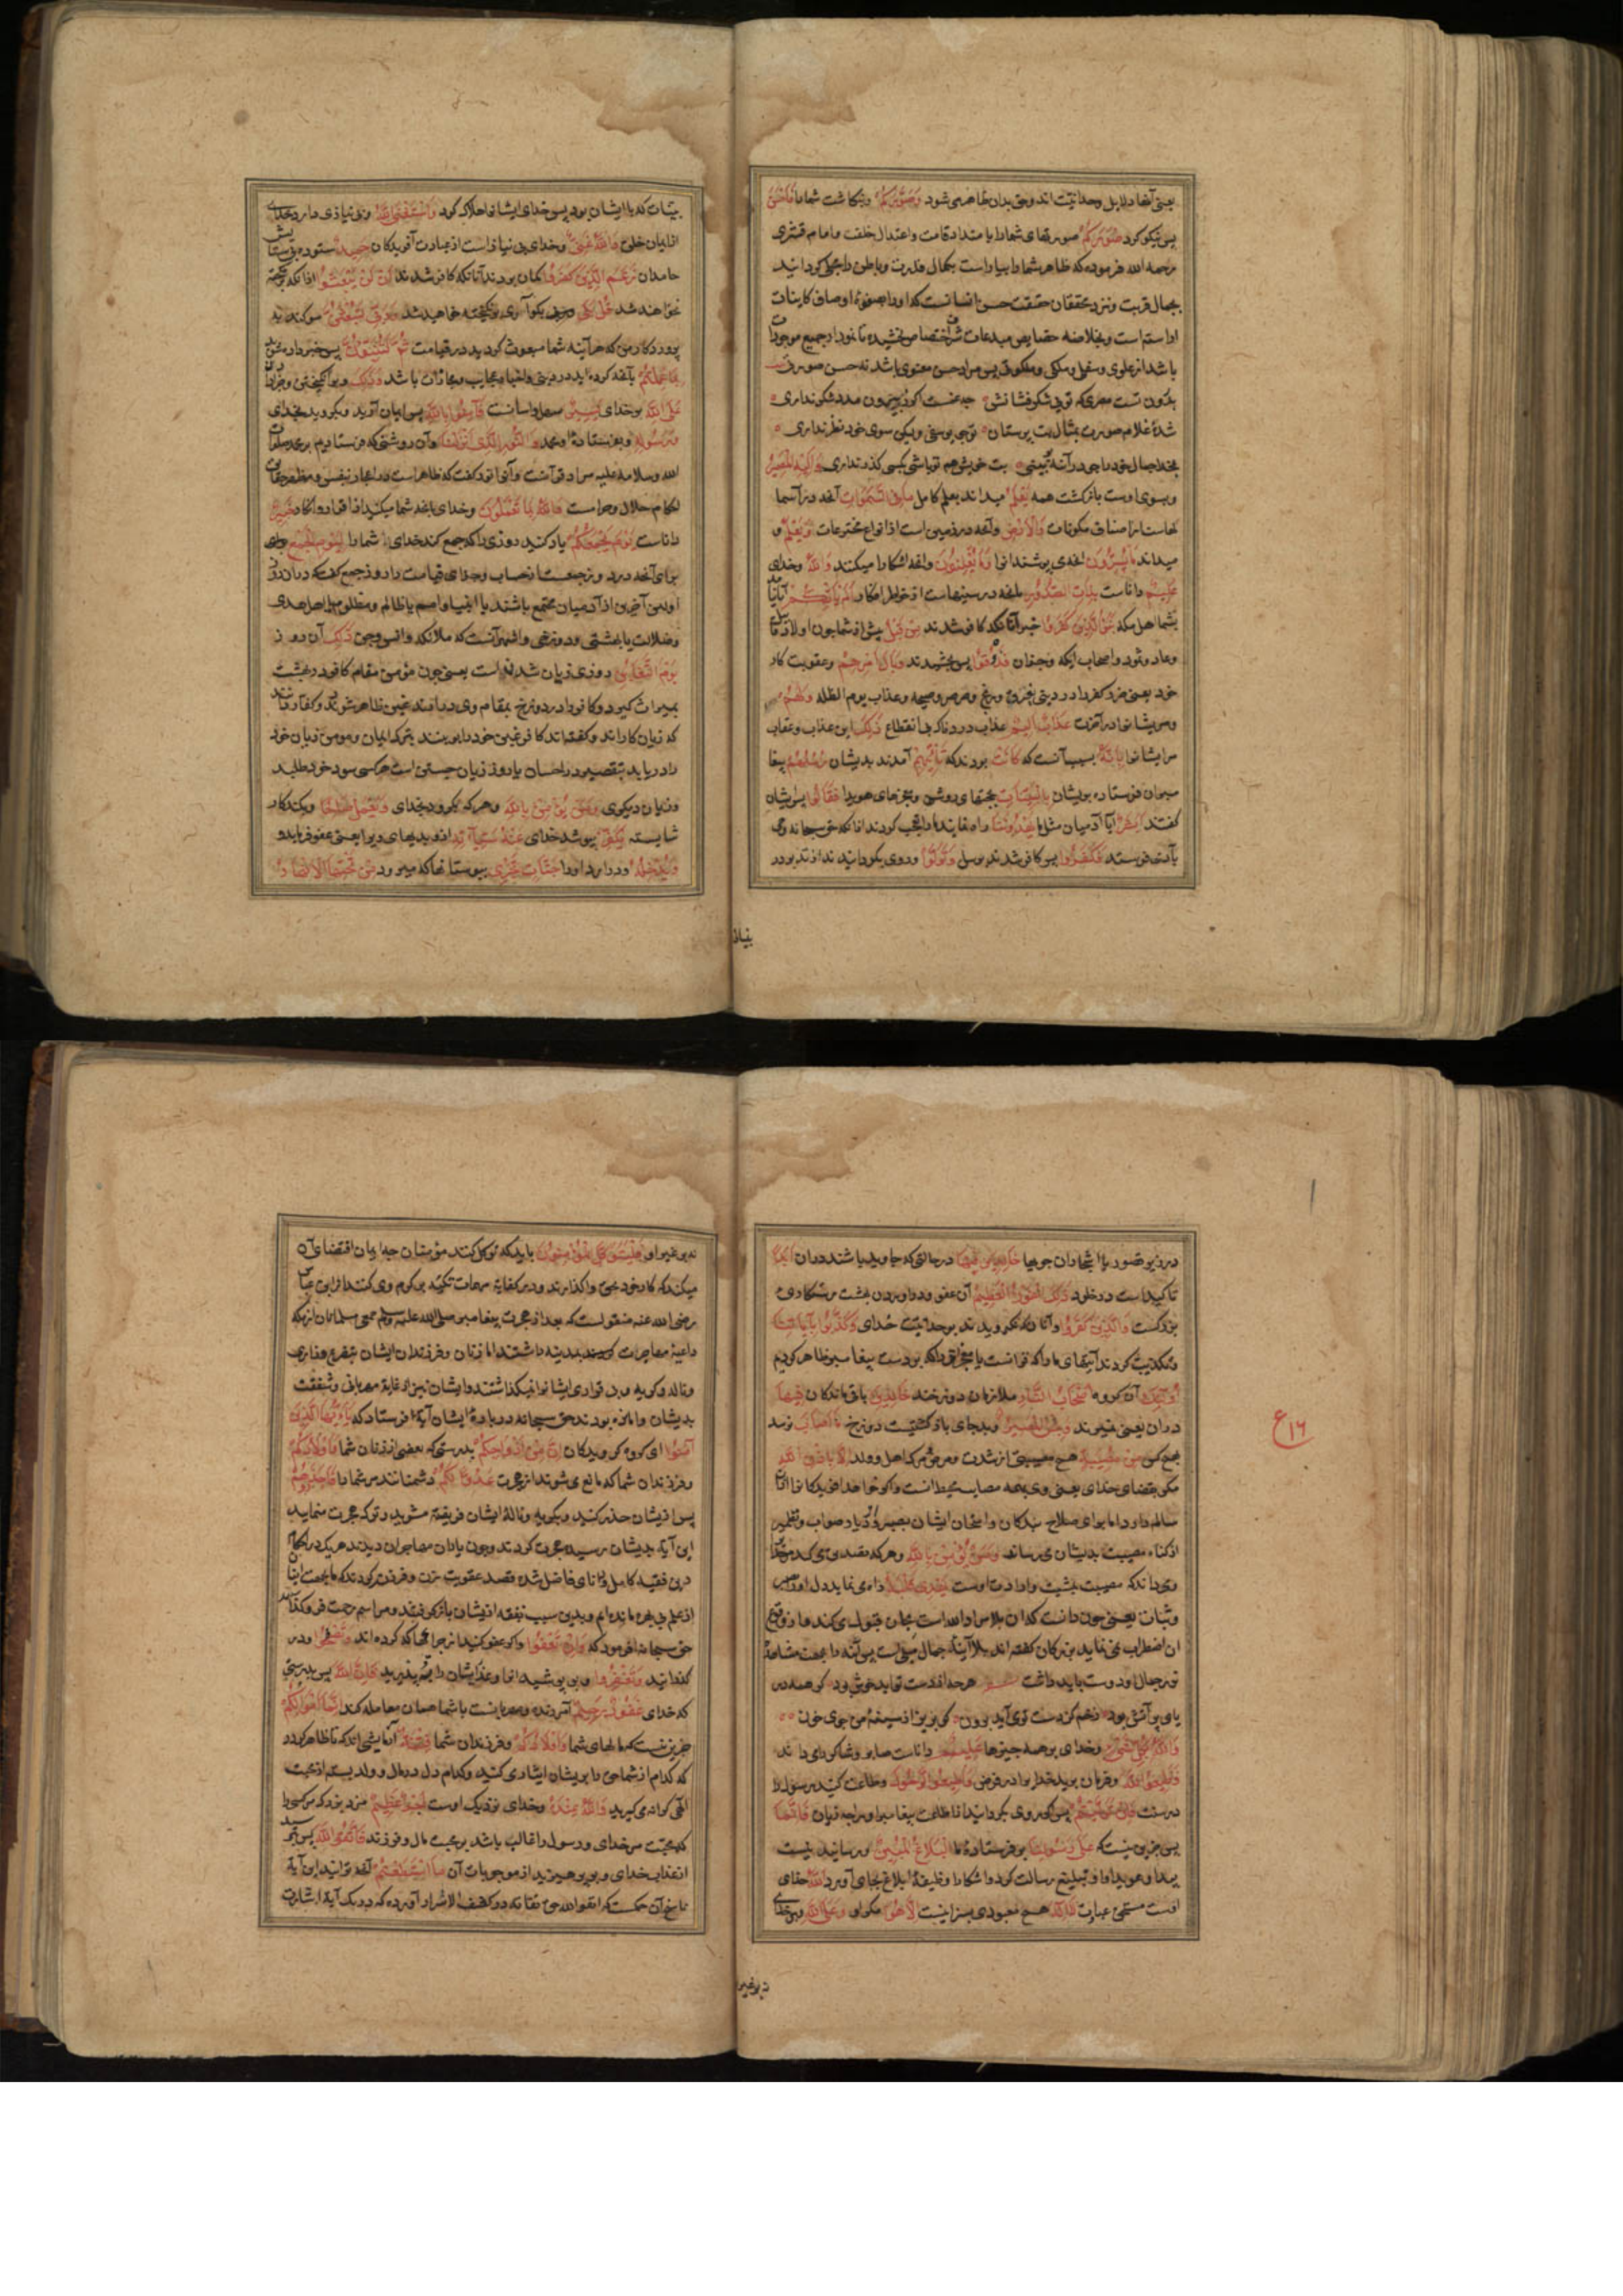 یعنی آنها دلایل وحدانیت اند وحق بدان ظاهر می شود وَصَوَّرَكُمْ وبنگاشت شمارا فَاَحْسَنَ
پس نیکو کرد صُوَرَكُمْ صورتهای شمارا بامتداد قامت واعتدال خلقت وامام قشری
رحمه الله فرموده که ظاهر شمارا بیاراست بکمال قدرت وباطن را جلی کردانید
بجمال قربت ونزد محققان حقیقت حسن انسانست که اورا بصفوة اوصاف کاینات
اراستم است وبخلاصه خصایص مبدعات شرف اختصاص بخشیده تا نمودار جمیع موجودات
باشد از علوی وسفلی وملکی وملکوتی پس مراد حسن معنوی باشد نه حسن صوری
شدۀ غلام صورت بمثال بت پرستان توچو یوسفی ولیکن سوی خود نظر نداری
بخدا جمال خود را چو در آینه ببینی بت خویش هم تو باشی بکسی کذر نداری وَاِلَيْهِ الْمَصِيرُ
وبسوی اوست بازکشت همه يَعْلَمُ میداند بعلم کامل مَا فِي السَّمٰوَاتِ آنچه در آسما
نهاست از اصناف مکونات وَالْاَرْضِ وآنچه در زمین است از انواع مخترعات وَيَعْلَمُ و
میداند مَا تُسِرُّونَ آنچه می پوشند انرا وَمَا تُعْلِنُونَ وآنچه اشکارا میکنند وَاللّٰهُ وخدای
عَلِيمٌ داناست بِذَاتِ الصُّدُورِ بآنچه در سینهاست از خواطر افکار اَلَمْ يَاْتِكُمْ آیا نیامد
بشما اهل مکه نَبَؤُا الَّذِينَ كَفَرُوا خبر آنانکه کافر شدند مِنْ قَبْلُ پیش از شما چون اولاد قابیل
وعاد وثمود واصحاب ایکه وجزان فَذَاقُوا پس بچشیدند وَبَالَ اَمْرِهِمْ وعقوبت کار
خود یعنی ضرر کفر را در دنیی بغرق وریح وصرصر وصیحه وعذاب یوم الظله وَلَهُمْ
ومر ایشانرا در آخرت عَذَابٌ اَلِيمٌ عذاب دردناک بی انقطاع ذٰلِكَ این عذاب وعقاب
مر ایشانرا بِاَنَّهُ بسبب آنست که كَانَتْ بودند که تَاْتِيهِمْ آمدند بدیشان رُسُلُهُمْ پیغا
مبران فرستاده بدیشان بِالْبَيِّنَاتِ بحجتهای روشن ومعجزهای هویدا فَقَالُوا پس ایشان
کفتند اَبَشَرٌ آیا آدمیان مثل ما يَهْدُونَنَا راه نمایند مارا تعجب کردند ازانکه حق سبحانه وحی
بآدمی فرستد فَكَفَرُوا پس کافر شدند برسل وَتَوَلَّوْا وروی بکردانیدند از تدبر در
بینات
بینات که با ایشان بود پس خدای ایشانرا هلاک کرد وَاسْتَغْنَى اللّٰهُ وبی نیازی دارد خدای
از ایمان خلق وَاللّٰهُ غَنِيٌّ وخدای بی نیاز است از عبادت آفریدکان حَمِيدٌ ستوده بی ستایش
حامدان زَعَمَ الَّذِينَ كَفَرُوا کمان بردند آنانکه کافر شدند اَنْ لَنْ يُبْعَثُوا آنکه برانکیخته
نخواهند شد قُلْ بَلٰى بکو آری برانکیخته خواهید شد وَرَبِّي لَتُبْعَثُنَّ سوکند به
پروردکار من که هر آینه شما مبعوث کردید در قیامت ثُمَّ لَتُنَبَّؤُنَّ پس خبر داده شوید
بِمَا عَمِلْتُمْ بآنچه کرده اید در دنیی وانبا بمحاسبه ومجازات باشد وَذٰلِكَ وبرانکیختن وجزا دادن
عَلَى اللّٰهِ بر خدای يَسِيرٌ سهل واسانست فَاٰمِنُوا بِاللّٰهِ پس ایمان آرید وبکروید بخدای
وَرَسُولِهِ وبفرستادۀ او محمد وَالنُّورِ الَّذِي اَنْزَلْنَا وآن روشنی که فرستادیم بر محمد صلوات
الله وسلامه علیه مراد قرآنست وآنرا نور کفت که ظاهر است در اعجاز بنفس ومظهر حقایق
احکام حلال وحرامست وَاللّٰهُ بِمَا تَعْمَلُونَ وخدای بآنچه شما میکنید از اقرار وانکار خَبِيرٌ
داناست يَوْمَ يَجْمَعُكُمْ یاد کنید روزی را که جمع کند خدای شمارا لِيَوْمِ الْجَمْعِ
برای آنچه درو روز جمعست از حساب وجزای قیامت را روز جمع کفت که دران روز
اولین آخرین از آدمیان مجتمع باشند یا انبیا وامم یا ظالم ومظلوم یا اهل هدی
وضلالت یا بهشتی ودوزخی واشهر آنست که ملائکه وانس وجن ذٰلِكَ آن روز
يَوْمُ التَّغَابُنِ روزی زیان شدنست یعنی چون مؤمن مقام کافر در بهشت
بمیراث کیرد وکافر را در دوزخ بمقام وی درارند غبن ظاهر شود وکفار دانند
که زیان کاراند وکفته اند کافر غبن خود را بیند بترک ایمان ومومن زیان خود
را دریابد بتقصیر در احسان یا روز زیان جستن است هرکسی سود خود طلبد
وزیان دیکری وَمَنْ يُؤْمِنْ بِاللّٰهِ وهرکه بکرود بخدای وَيَعْمَلْ صَالِحًا وبکند کار
شایسته يُكَفِّرْ بپوشد خدای عَنْهُ سَيِّاٰتِهِ ازو بدیهای ویرا یعنی عفو فرماید و
وَيُدْخِلْهُ ودر ارد اورا جَنَّاتٍ تَجْرِي ببوستانها که میرود مِنْ تَحْتِهَا الْاَنْهَارُ
در زیر قصور یا اشجار ان جویها خَالِدِينَ فِيهَا در حالتی که جاوید باشند دران اَبَدًا
تاکیداست در خلود ذٰلِكَ الْفَوْزُ الْعَظِيمُ آن عفو ودر اوردن بهشت رستکاری
بزرکست وَالَّذِينَ كَفَرُوا وآنانکه نکرویدند بوحدانیت خدای وَكَذَّبُوا بِاٰيَاتِنَا
وتکذیب کردند آیتهای مارا که قرانست یا معجزاتی را که بر دست پیغامبر ظاهر کردیم
اُولٰئِكَ آن کروه اَصْحَابُ النَّارِ ملازمان دوزخند خَالِدِينَ باقی ماندکان فِيهَا
دران یعنی نمیرند وَبِئْسَ الْمَصِيرُ وبدجای بازکشتیست دوزخ مَا اَصَابَ نرسد
بهیچ کس مِنْ مُصِيبَةٍ هیچ مصیبتی از شدت ومرض ومرک اهل وولد اِلَّا بِاِذْنِ اللّٰهِ
ازکناه مصیبت بدیشان می رساند وَمَنْ يُؤْمِنْ بِاللّٰهِ وهرکه تصدیق می کند مر خدایرا
ومی داند که مصیبت بمشیت وارادت اوست يَهْدِ قَلْبَهُ راه می نماید دل اورا بصبر
وثبات یعنی چون دانست که ان بلا مراد الله است بجان قبول می کند واز وقوع
ان اضطراب نمی نماید
پای پر آتش بود زخم کزدست توی آید برون کی بریزد از سینۀ من جوی خون
وَاللّٰهُ بِكُلِّ شَيْءٍ وخدای بر همه چیزها عَلِيمٌ داناست صابر وشاکر را می داند
وَاَطِيعُوا اللّٰهَ وفرمان برید خدایرا در فرض وَاَطِيعُوا الرَّسُولَ وطاعت کنید رسول را
در سنت فَاِنْ تَوَلَّيْتُمْ پس اکر روی بکردانید از طاعت پیغامبر اورا چه زیان فَاِنَّمَا
پس جزین نیست که عَلٰى رَسُولِنَا بر فرستادۀ ما الْبَلَاغُ الْمُبِينُ رسانیدنیست
پیدا وهویدا واو تبلیغ رسالت کرد واشکارا وظیفۀ ابلاغ بجای آورد اَللّٰهُ خدای
اوست مستحق عبادت لَا اِلٰهَ هیچ معبودی بسزا نیست اِلَّا هُوَ مکر او وَعَلَى اللّٰهِ وبر خدای
نه بر غیر
نه بر غیر او فَلْيَتَوَكَّلِ الْمُؤْمِنُونَ باید که توکل کنند مؤمنان چه ایمان اقتضای آن
میکند که کار خود بحق واکذارند ودر کفایة مهمات تکیه بر کرم وی کنند از ابن عباس
رضی الله عنه منقولست که بعد از هجرت پیغامبر صلی الله علیه وسلم جمعی مسلمانان از مکه
داعیة مهاجرت بمدینه داشتند اما زنان وفرزندان ایشان بتضرع وزاری
وناله وکریه وبی قراری ایشانرا نمیکذاشتند وایشان نیز از غایة مهربانی وشفقت
بدیشان وامانده بودند حق سبحانه در بارۀ ایشان آیة فرستاد که يَا اَيُّهَا الَّذِينَ
اٰمَنُوا ای کروه کرویدکان اِنَّ مِنْ اَزْوَاجِكُمْ بدرستی که بعضی از زنان شما وَاَوْلَادِكُمْ
وفرزندان شما که مانع می شوند از هجرت عَدُوًّا لَكُمْ دشمنانند مر شمارا فَاحْذَرُوهُمْ
پس ازیشان حذر کنید وبکریه ونالۀ ایشان فریفته مشوید وترک هجرت منمایید
این آیة بدیشان رسید هجرت کردند وچون یاران مهاجران دیدند هر یک در احکام
دین فقیه کامل ودانای فاضل شده قصد عقوبت زن وفرزند کردند که ما بجهت اینان
از علم بی بهره مانده ایم وبدین سبب نفقه ازیشان بازکرفتند ومراسم مرحمت فروکذاشتند
حق سبحانه فرمود که وَاِنْ تَعْفُوا واکر عفو کنید از جرایمی که کرده اند وَتَصْفَحُوا ودر
کذرانید وَتَغْفِرُوا وبپوشید انرا وعذر ایشان را بپذیرید فَاِنَّ اللّٰهَ پس بدرستی
که خدای غَفُورٌ رَحِيمٌ آمرزنده ومهربانست باشما همان معامله کند اِنَّمَا اَمْوَالُكُمْ
جزین نیست که مالهای شما وَاَوْلَادُكُمْ وفرزندان شما فِتْنَةٌ آزمایشی اند که تا ظاهر کردد
که کدام از شما حق را بریشان ایثار می کنید وکدام دل در مال وولد بسته از محبت
الهی کرانه می کیرید وَاللّٰهُ عِنْدَهُ وخدای نزدیک اوست اَجْرٌ عَظِيمٌ مزد بزرک مر کسی را
که محبت مر خدای ورسول را غالب باشد بر محبت مال وفرزند فَاتَّقُوا اللّٰهَ پس بترسید
از عذاب خدای وبپرهیزید از موجبات آن مَا اسْتَطَعْتُمْ آنچه توانید این آیة
ناسخ آن حکمست که اتقوا الله حق تقاته در کشف الاسرار آورده که در یک آیة اشارت
ع ١٦